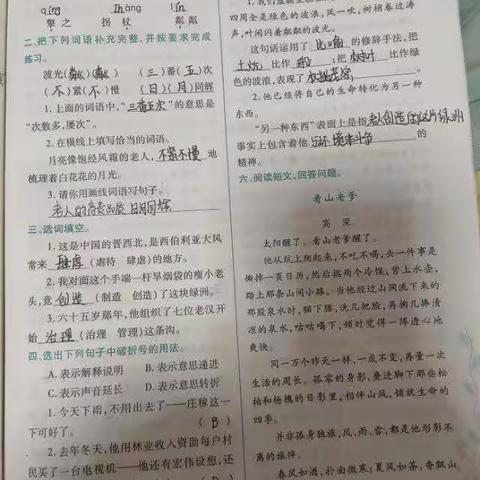 qíng zhàng lín
擎之 拐杖 粼粼
二、把下列词语补充完整,并按要求完成
练习。
波光(粼)(粼) (三)番(五)次
(不)紧(不)慢 (日)(月)同辉
1.上面的词语中,“三番五次”的意思是
“次数多,屡次”。
2.在横线上填写恰当的词语。
月亮像饱经风霜的老人,不紧不慢地
梳理着白花花的月光。
3.请你用画线词语写句子。
老人的高贵品质 日月同辉
三、选词填空。
1.这是中国的晋西北,是西伯利亚大风
常来 肆虐 (虐待 肆虐)的地方。
2.我对面这个手端一杆旱烟袋的瘦小老
头,竟 创造 (制造 创造)了这块绿洲。
3.六十五岁那年,他组织了七位老汉开
始 治理 (治理 管理)这条沟。
四、选出下列句子中破折号的用法。
A.表示解释说明 B.表示意思递进
C.表示声音延长 D.表示意思转折
1.今天下雨,不用出去了——庄稼这一
下可好了。 (B)
2.去年冬天,他用林业收入资助每户村
民买了一台电视机——他还有宏伟设想,还
四周全是绿色的波浪,风一吹,树梢卷过涛
声,叶间闪着粼粼的波光。
这句话运用了 比喻 的修辞手法,把
土炕 比作 船 ;把 树叶 比作绿
色的波浪,表现了
2.他已经将自己的生命转化为另一种
东西。
“另一种东西”表面上是指老人创造的这片绿洲
事实上包含着他 与环境来斗争 的
精神。
六、阅读短文,回答问题。
看山老爹
高深
太阳醒了。看山老爹醒了。
他从炕上爬起来,不吃不喝,头一件事是
撕掉一页日历,然后揣两个冷馍,背上水壶,
踏上那条山间小路。当他经过山涧流下来的
那股泉水时,猫下腰,洗几把脸,再掬几捧清
凉的泉水,咕咕喝下,顿时觉得一阵透心地
爽快。
同一万个昨天一样,一成不变,再重一次
生活的周长。孤零的身影,叠进脚下那些松
柏和杨槐的日影里,相伴山风,铺就生命的
四季。
并非孤身独旅,风、雨、雷,都是他形影不
离的旅伴。
春风如酒,扑面微寒;夏风如茶,香飘山